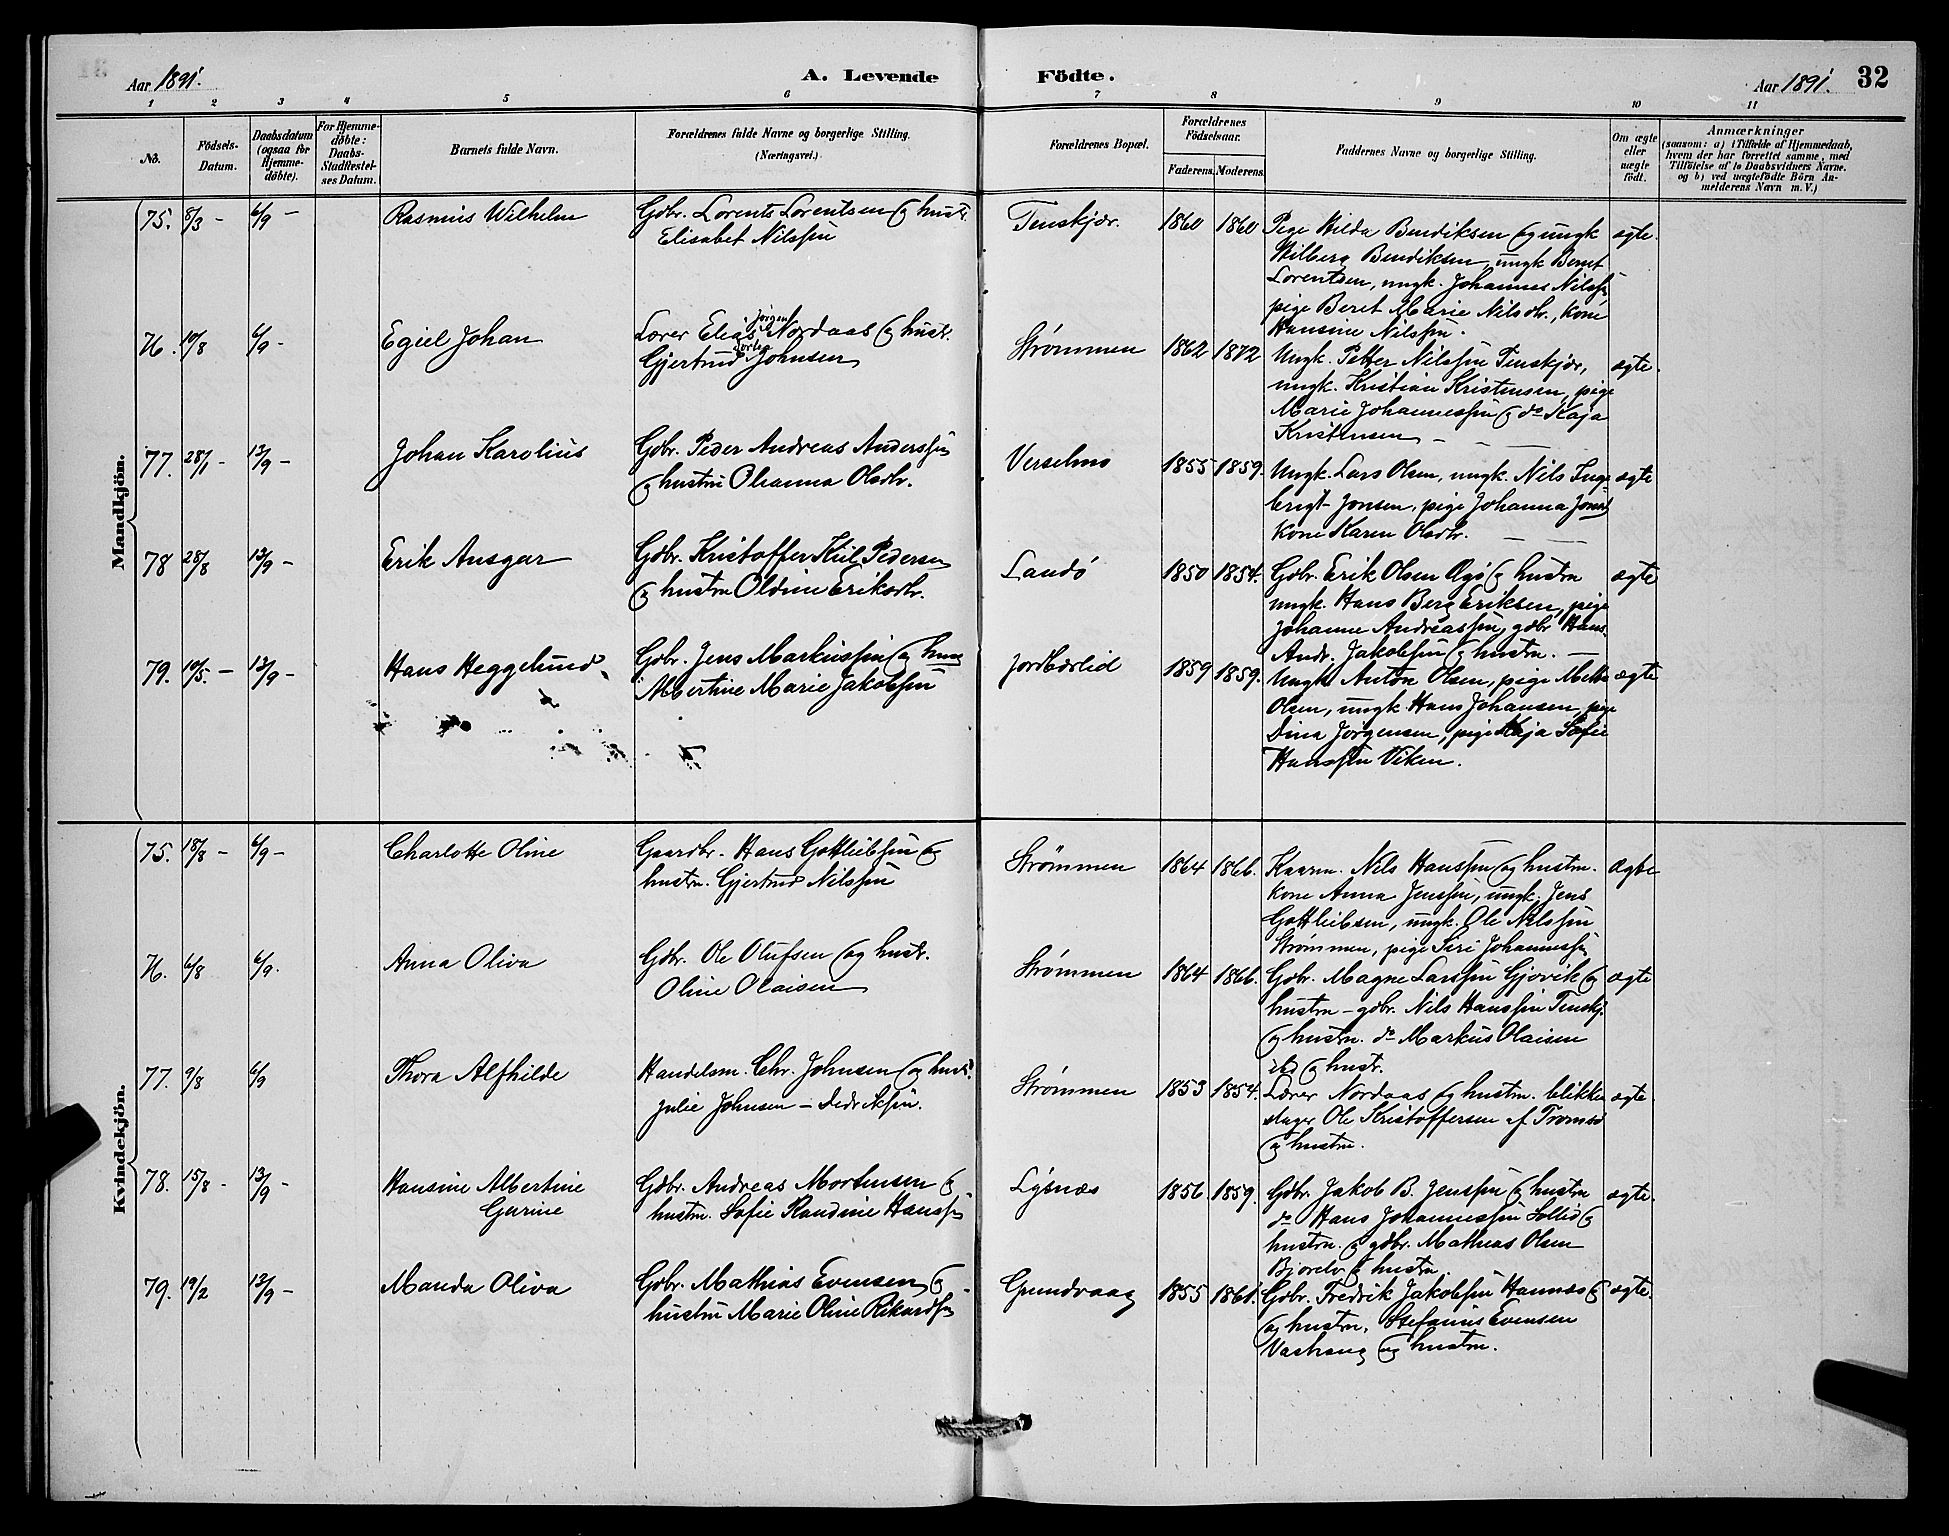 Aar 1891. A. Levende Födte. Aar 1891. 32
1 2 3 4 5 6 7 8 9 10 11
No. Födsels-Datum. Daabsdatum (ogsaa for Hjemme-döbte). For Hjemme-döbte: Daabs-Stadfæstel-ses Datum. Barnets fulde Navn. Forældrenes fulde Navne og borgerlige Stilling. (Næringsvei.) Forældrenes Bopæl. Forældrenes Födselsaar. Faderens. Moderens. Faddernes Navne og borgerlige Stilling. Om ægte eller uægte födt. Anmærkninger (saasom: a) i Tilfælde af Hjemmedaab, hvem der har forrettet samme, med Tilföielse af to Daabsvidners Navne. og b) ved uægtefödte Börn An-melderens Navn m. V.)
Mandkjön.
75. 8/3 - 6/9 - Rasmus Wilhelm Gdbr. Lorents Lorentsen og hustr. Tenskjær. 1860 1860 Pige Hilda Bendiksen og ungk ægte.
Elisabet Nilssen Hilberg Bendiksen, ungk Bernt
Lorentsen, ungk. Johannes Nilss.
pige Beret Marie Nilsdtr., kone
Hansine Nilssen.
76. 10/8 6/9 - Egiel Johan Lærer Elias Jørgen Nordaas og hustr. Strømmen 1862 1872 Ungk. Petter Nilssen Tenskjær, ægte.
Gjertrud Dortea Johnsen ungk. Kristian Kristensen, pige
Marie Johannessen og do Kaja
Kristensen
77. 28/1 - 13/9 - Johan Karolius Gdbr. Peder Andreas Anderssen Verselmo 1855 1859. Ungk. Lars Olsen, ungk. Nils Inge ægte
og hustru Ohanna Olsdtr. brigt Jonsen, pige Johanna Jonsd
kone Karen Olsdtr.
78 28/8 13/9 - Erik Ansgar Gdbr. Kristoffer Kiil Pedersen Sandö 1850 1854. Gdbr. Erik Olsen og hustru ægte
og hustru Oldine Eriksdtr. ungk. Hans Berg Eriksen, pige
Johanne Andreassen, gdbr Hans
Andr. Jakobsen og hustru.
79. 10/5. - 13/9 - Hans Heggelund Gdbr. Jens Markussen og hust Jordbærlid 1859 1859. Ungk Anton Olsen, pige Mette ægte
Albertine Marie Jakobsen Olsen, ungk. Hans Johansen, pige
Dina Jørgensen, pige Kaja Sofie
Hanssen Viken.
Kvindekjön.
75. 18/8 - 6/9 - Charlotte Oline Gaardbr. Hans Gottliebsen og Strömmen 1864 1866. Kaarm. Nils Hanssen og hustru. ægte
hustru. Gjertrud Nilssen kone Anna Jenssen, ungk. Jens
Gottliebsen, ungk. Ole Nilssen
Strømmen, pige Siri Johannessen
76. 6/8 6/9. Anna Oliva Gdbr. Ole Olufsen og hustr. Strømmen 1864 1866. Gdbr. Magne Larssen Gjovik og ægte
Oline Olaisen hustru - gdbr. Nils Hanssen Tenskj.
og hustru. do Markus Olaisen
ibd og hustr.
77. 9/8 6/9 Thora Alfhilde Handelsm. Chr. Johnsen og hustr. Strømmen 1853 1854. Lærer Nordaas og hustru. blikken ægte.
Julie Johnsen - Dedriksen. slager Ole Kristoffersen af Tromsö
og hustru.
78. 15/8 - 13/9 - Hansine Albertine Gdbr. Andreas Mortensen og Lysnæs 1856. 1859. Gdbr. Jakob B. Jenssen og hustru ægte.
Gurine hustru. Sofie Randine Hanssen do Hans Johannessen Sollid og
hustru. og gdbr. Mathias Olsen
Bjorelv og hustru.
79. 19/2 13/9 - Marda Oliva Gdbr. Mathias Evensen og Grundvaag 1855 1861. Gdbr. Fredrik Jakobsen Hamnæs og ægte.
hustru Marie Oline Rikardsen og hustru. Stefanus Evensen
og hustru.